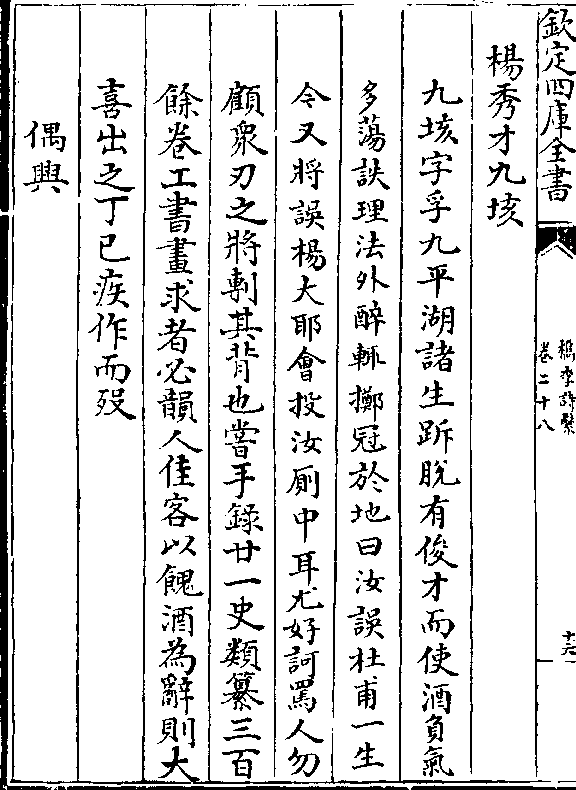 欽定四庫全書
檇李詩繫
卷二十八
楊秀才九垓
九垓字孚九平湖諸生跅脫有俊才而使酒負氣
多蕩詄理法外醉輒擲冠於地曰汝誤杜甫一生
今又將誤楊大耶會投汝厠中耳尤好訶罵人勿
顧衆刃之將剚其背也嘗手錄廿一史類纂三百
餘卷工書畫求者必韻人佳客以餽酒為辭則大
喜出之丁巳疾作而歿
偶興